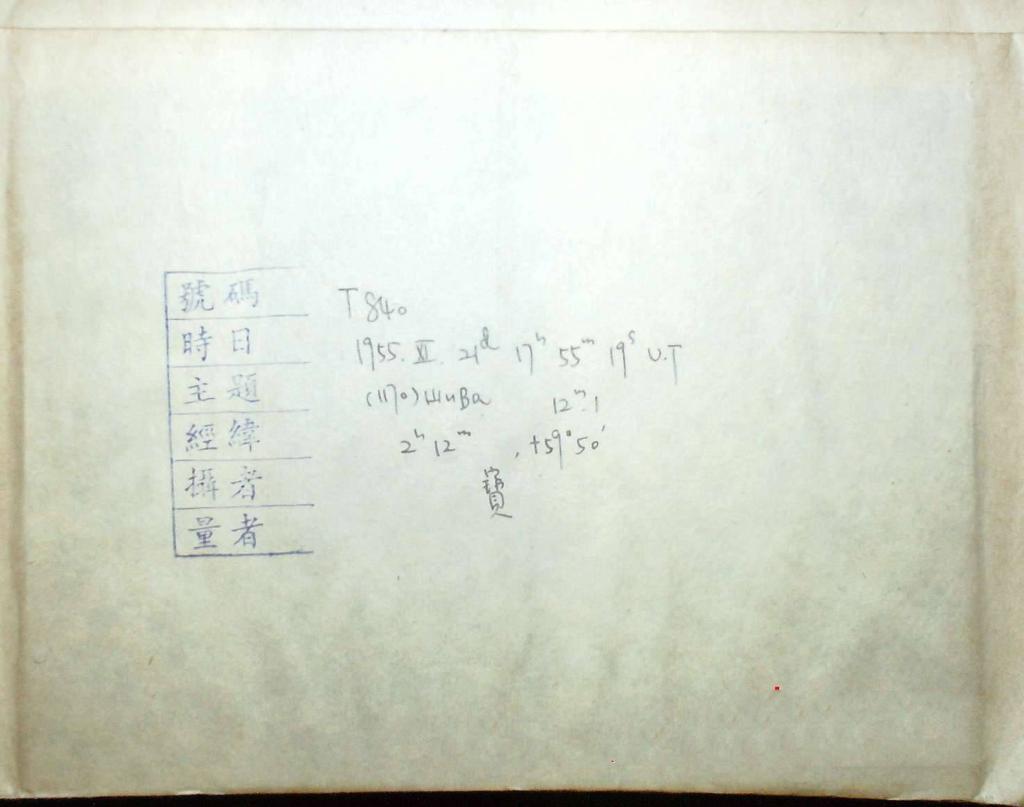 號碼 T840
時日 1955. XI. 21ᵈ 17ʰ 55ᵐ 19ˢ U.T
主題 (1170) ШиВа 12ᵐ.1
經緯 2ʰ 12ᵐ , +59°50′
攝者 寶
量者